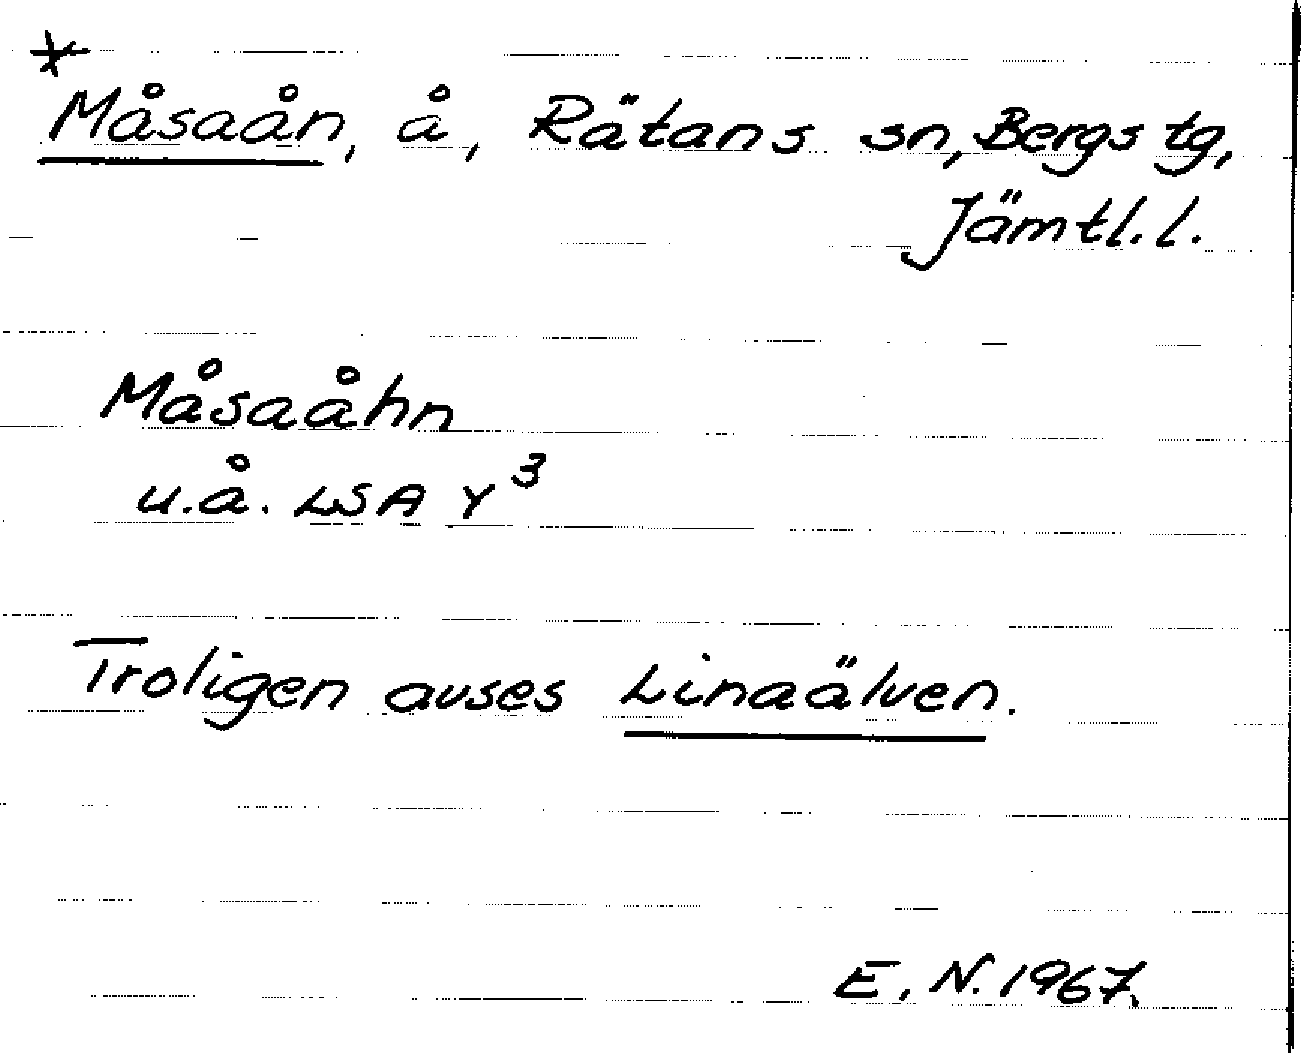 *
Måsaån, å, Rätans sn, Bergs tg,
Jämtl. l.
Måsaåhn
u.å. LSA Y³
Troligen avses Linaälven.
E. N. 1967.